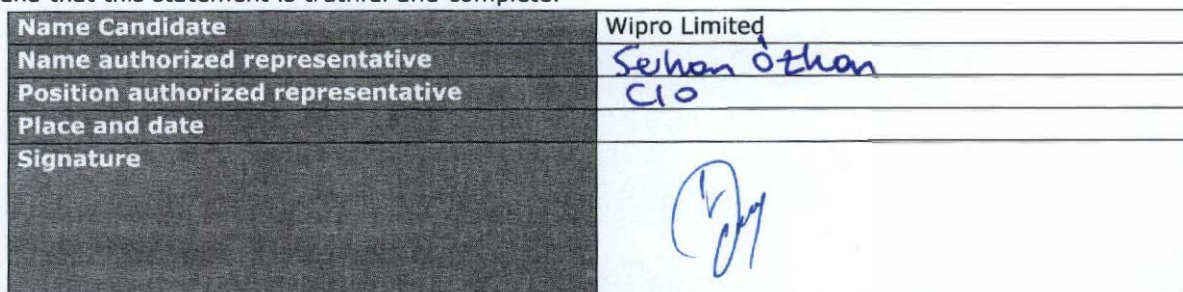 and that this statement is truthful and complete.
Name Candidate Wipro Limited
Name authorized representative Serhan Özhan
Position authorized representative CIO
Place and date
Signature